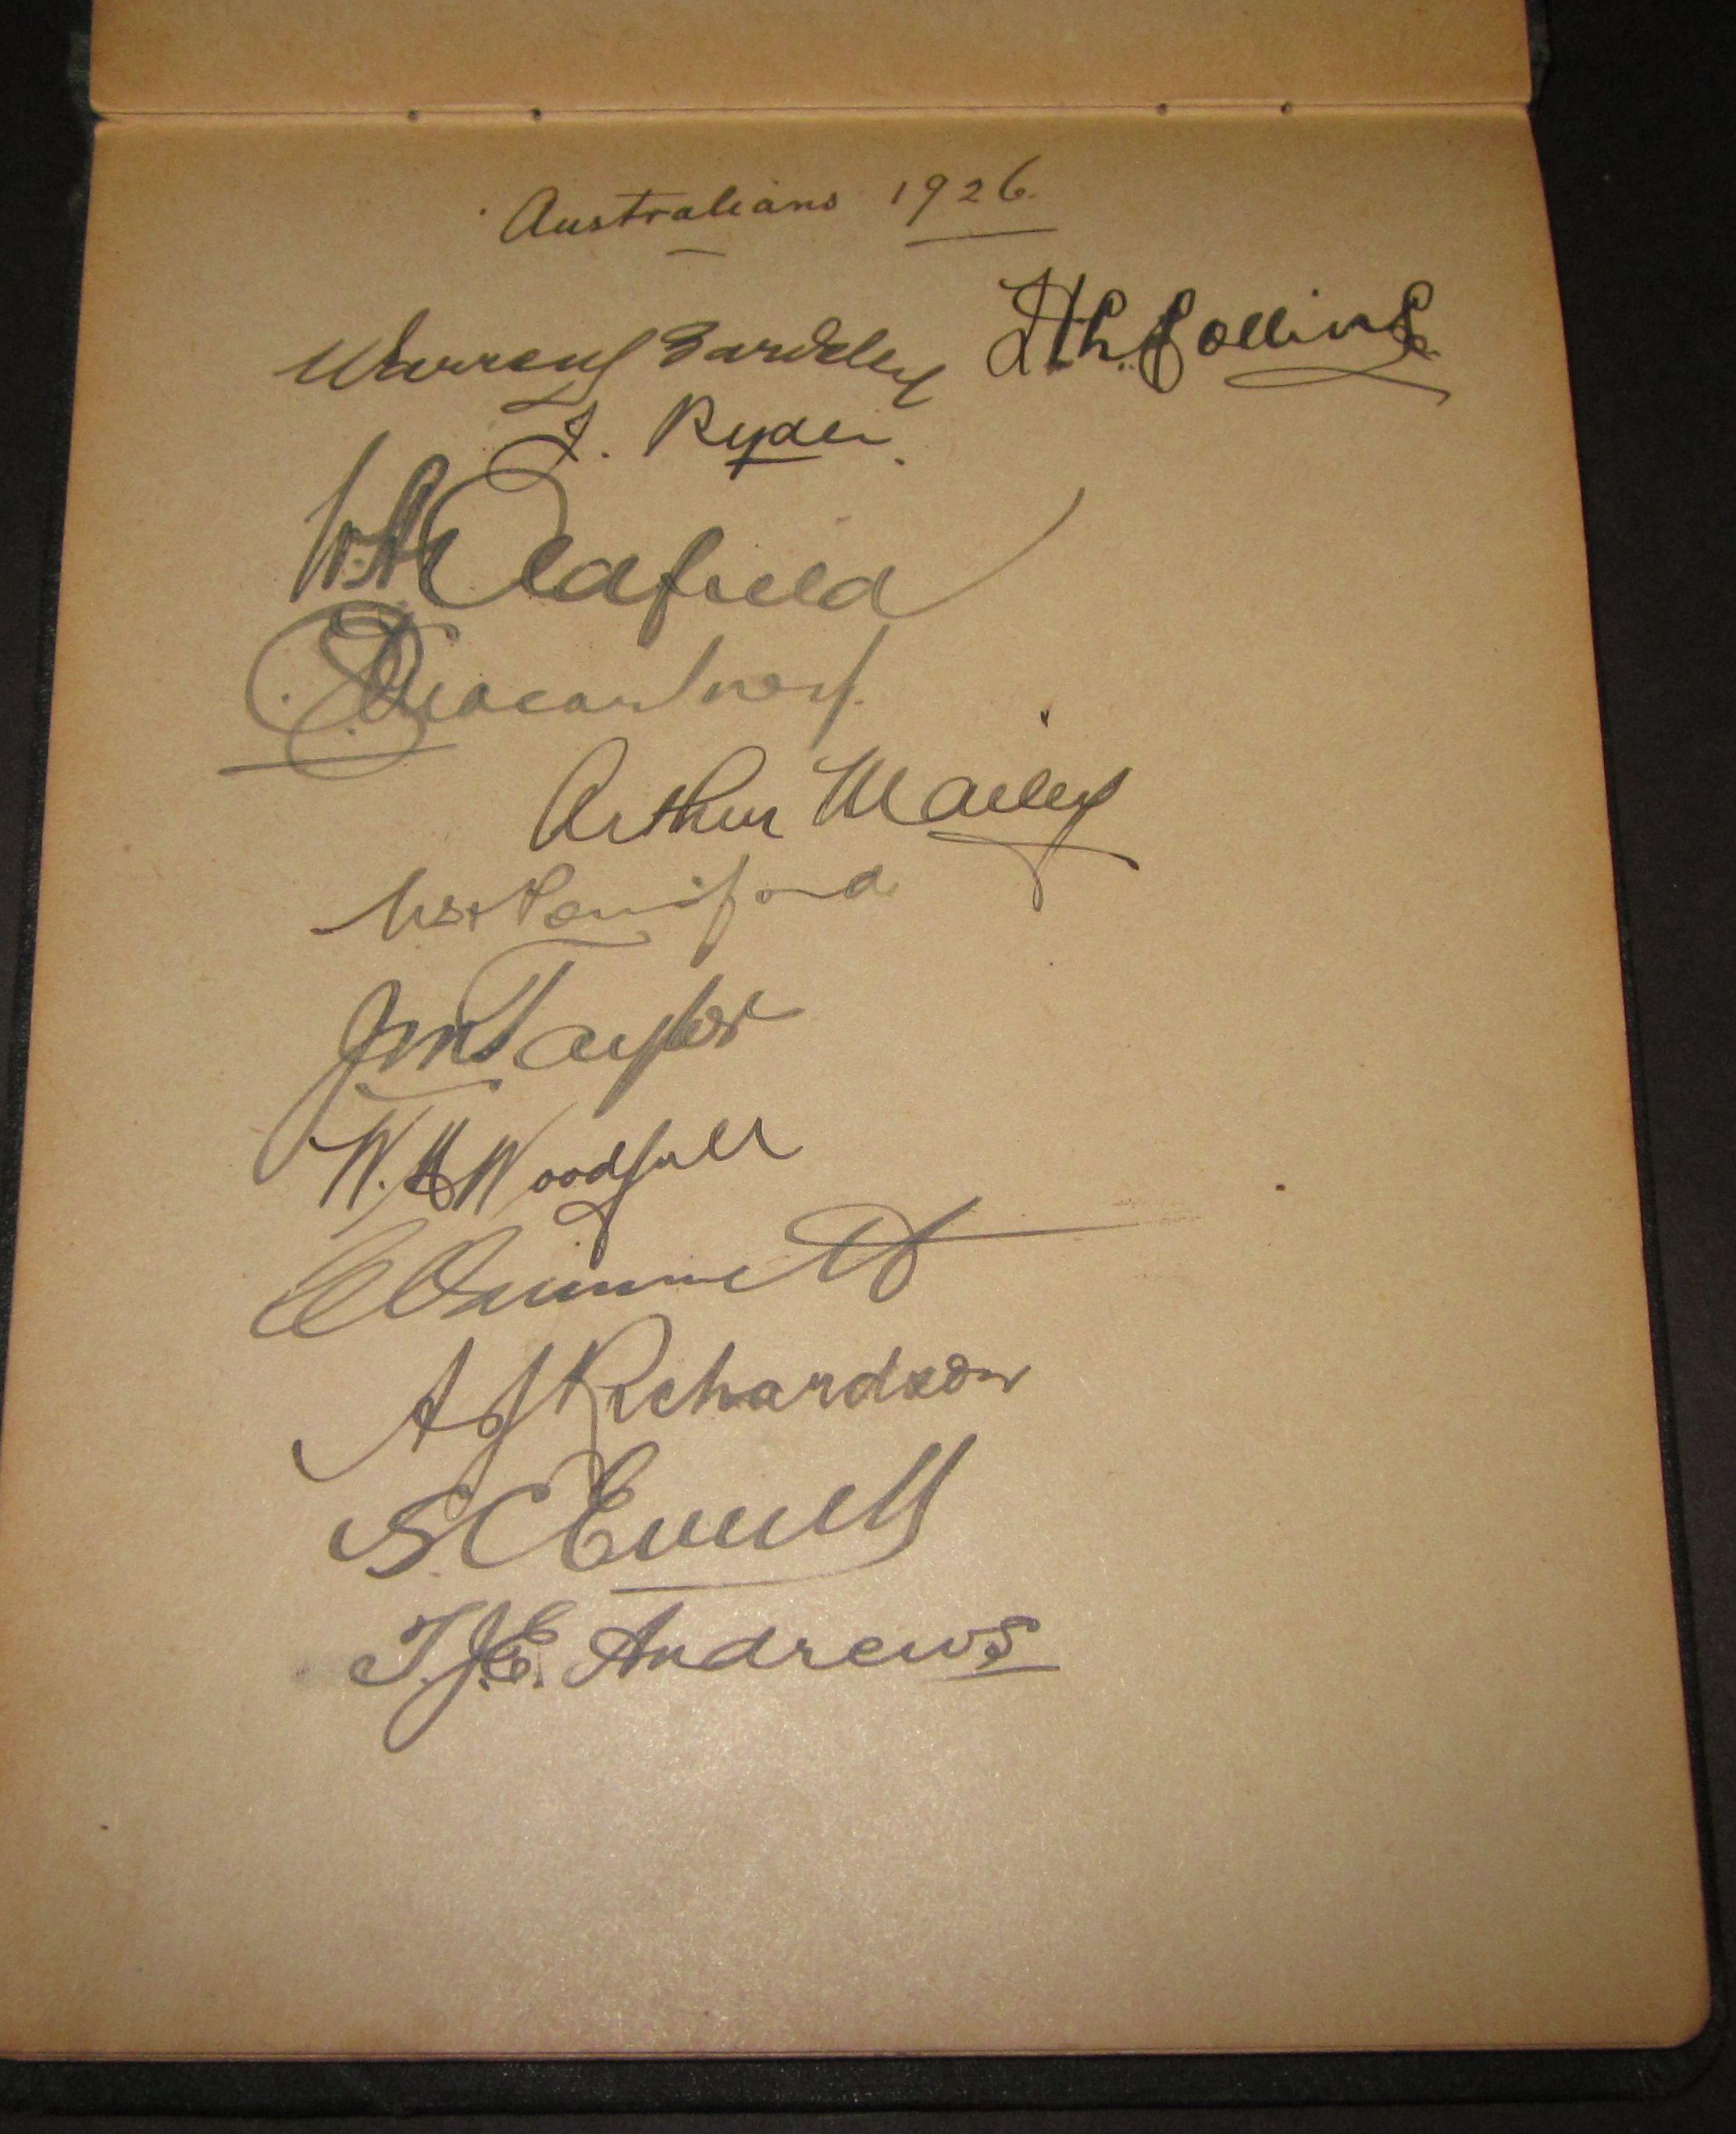 Australians 1926.
Warren Bardsley H.L. Collins
J. Ryder.
W.A. Oldfield
C. G. Macartney.
Arthur Mailey
W.H. Ponsford
J M Taylor
W. M Woodfull
C V Grimmett
A J Richardson
S C Everett
T.J.E. Andrews